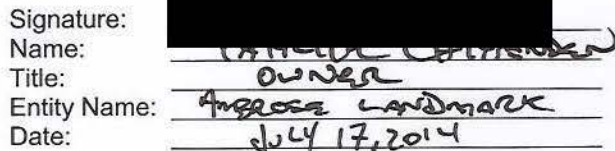 Signature:
Name:
Title: OWNER
Entity Name: AMBROSE LANDMARK
Date: JULY 17, 2014